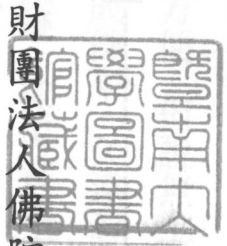 財團法人佛陀
暨南大
學圖書
館藏書